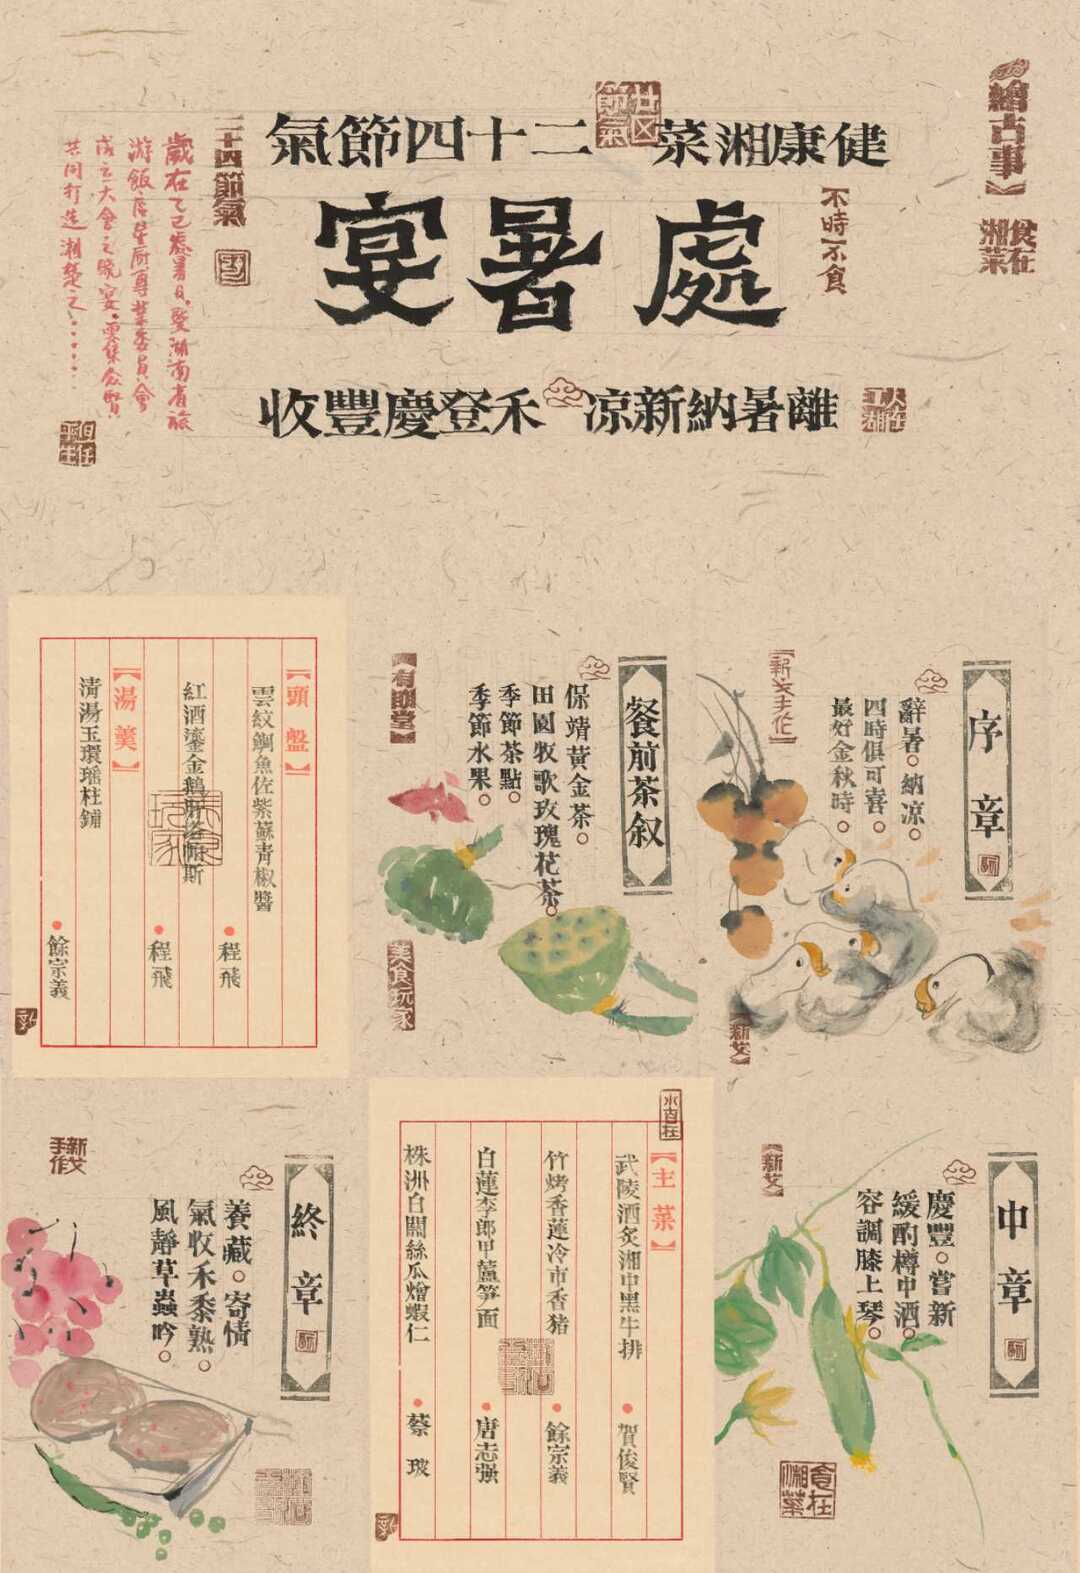 繪古事】
食在
湘菜
健康湘菜
廿四
節氣
二十四節氣
處暑宴
不時不食
離暑納新涼
禾登慶豐收
人在
江湖
二十四節氣
歲在乙巳處暑日,暨湖南省旅
游飯店星厨專業委員會
成立大會之晚宴,雲集众賢
共同打造湘楚之……
序章
辭暑。納凉。
四時俱可喜。
最好金秋時。
【新文手作】
【新文】
餐前茶叙
保靖黃金茶。
田園牧歌玫瑰花茶。
季節茶點。
季節水果。
【有朋堂】
美食玩家
【頭盤】
雲紋鯛魚佐紫蘇青椒醬
程飛
紅酒鎏金鵝肝塔帕斯
程飛
【湯羹】
清湯玉環瑶柱鋪
餘宗義
中章
慶豐。嘗新
緩酌樽中酒。
容調膝上琴。
【新文】
食在
湘菜
【主菜】
武陵酒炙湘中黑牛排
賀俊賢
竹烤香蓮冷市香豬
餘宗義
白蓮李郎甲蘆笋面
唐志强
株洲白關絲瓜燴蝦仁
蔡玻
終章
養藏。寄情
氣收禾黍熟。
風靜草蟲吟。
新文
手作